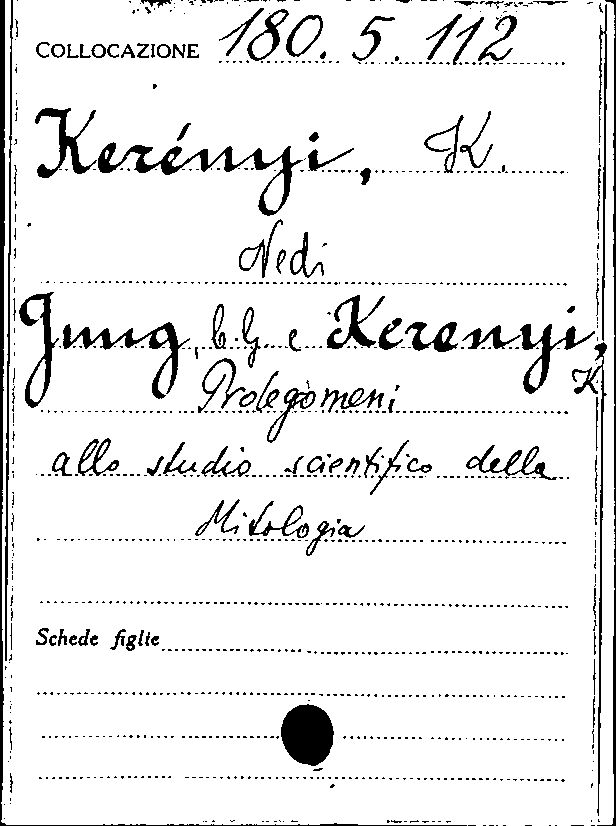 COLLOCAZIONE 180. 5. 112
Kerényi, K.
Vedi
Jung, C. G. e Kerenyi, K.
Prolegòmeni
allo studio scientifico della
Mitologia
Schede figlie